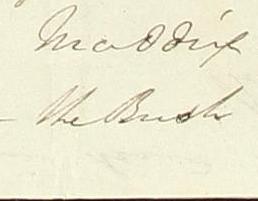 Maddix
- the Bush